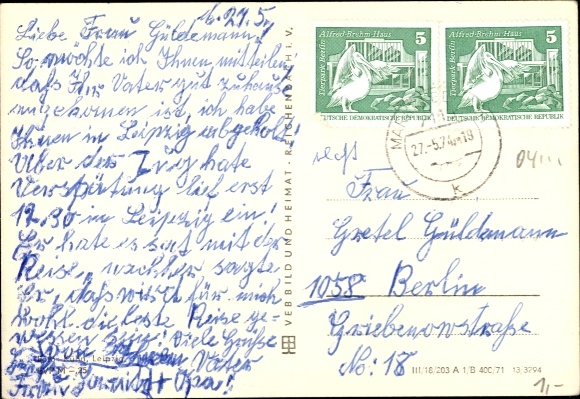 d. 27.5.
Liebe Frau Güldemann!
So möchte ich Ihnen mitteilen
daß Ihr Vater gut zuhause
angekommen ist, ich habe
Ihnen in Leipzig abgeholt!
Aber der Zug hate
Verspätung lief erst
17.30 in Leipzig ein!
Er hate es sat mit der
Reise, nachher sagte
Er, daß wirt für mich
wohl die leste Reise ge-
wesen sein! Viele Grüße
Vater
Opa!
VEB BILD UND HEIMAT · REICHENBACH I. V.
Alfred-Brehm-Haus 5
Tierpark Berlin
DEUTSCHE DEMOKRATISCHE REPUBLIK
Alfred-Brehm-Haus 5
Tierpark Berlin
DEUTSCHE DEMOKRATISCHE REPUBLIK
27.-5.74-18
k
Frau
Gretel Güldemann
1058 Berlin
Griebenowstraße
No: 18
III/18/203 A 1/B 400/71 13/3294
1,-